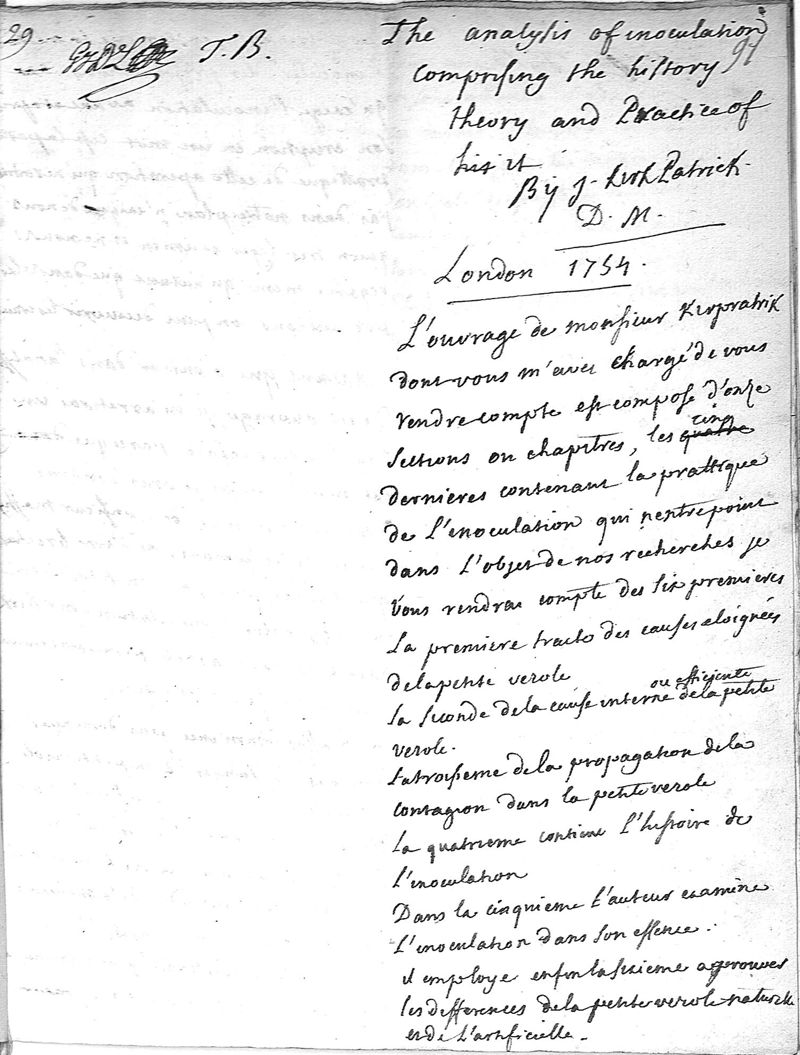 29
T. B.
97
The analysis of inoculation
comprising the history
theory and Practice of
it
By J. KirkPatrick.
D. M.
London 1754.
L'ouvrage de monsieur Kirpratrik
dont vous m'avez chargé de vous
rendre compte est composé d'onze
sections ou chapitres, les quatre cinq
dernieres contenant la prattique
de L'inoculation qui n'entre point
dans L'objet de nos recherches je
Vous rendrai compte des six premieres
La premiere traite des causes eloignées
de la petite verole
La seconde de la cause interne ou efficiente de la petite
verole.
La troisieme de la propagation de la
contagion dans la petite verole
La quatrieme contient L'histoire de
L'inoculation
Dans la cinquieme L'auteur examine
L'inoculation dans son essence.
il employe enfin la sixieme a prouver
les differences de la petite verole naturelle
et de L'artificielle.